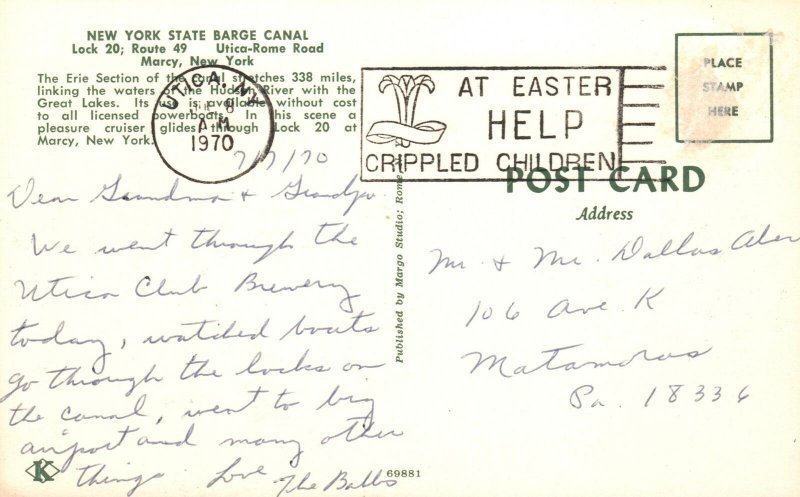 NEW YORK STATE BARGE CANAL
Lock 20; Route 49 Utica-Rome Road
Marcy, New York
The Erie Section of the canal stretches 338 miles,
linking the waters of the Hudson River with the
Great Lakes. Its use is available without cost
to all licensed powerboats. In this scene a
pleasure cruiser glides through Lock 20 at
Marcy, New York.
UTICA, NY
8
AM
1970
AT EASTER
HELP
CRIPPLED CHILDREN
PLACE
STAMP
HERE
POST CARD
Address
7/7/70
Dear Grandma + Grandpa
We went through the
Utica Club Brewery
today, watched boats
go through the locks on
the canal, went to big
airport and many other
things Love The Balls
Published by Margo Studio; Rome
Mr. + Mr. Dallas
106 Ave. K
Matamoras
Pa. 18336
K
69881